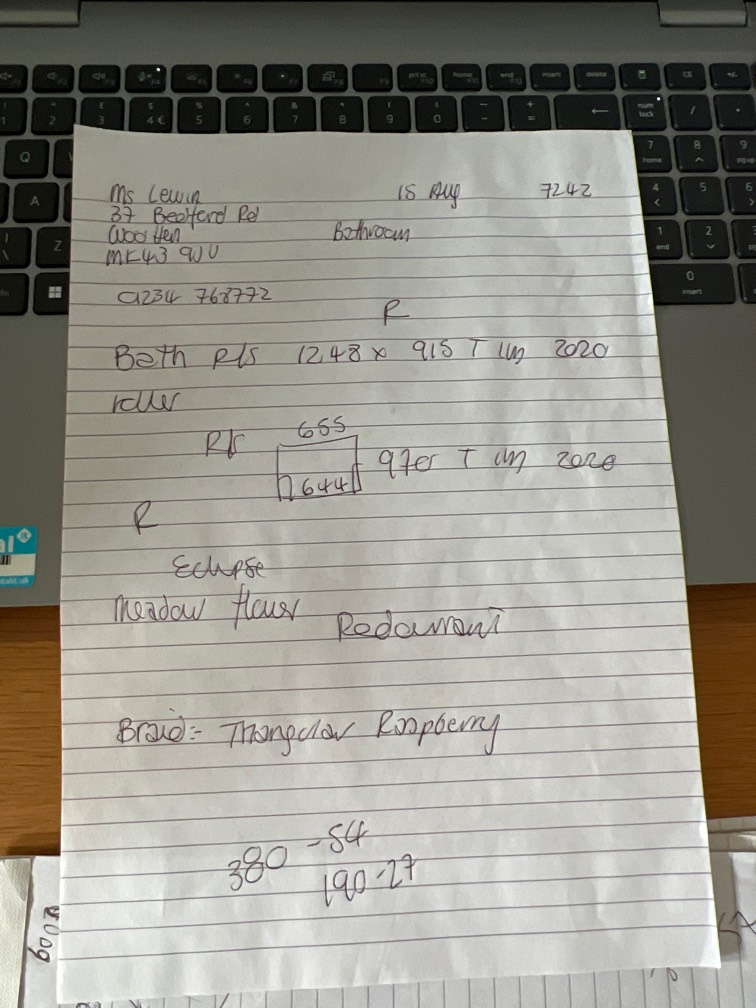 Ms Lewin 15 Aug 7242
37 Bedford Rd
Wootten Bathroom
MK43 9JU
01234 768772
R
Bath R/S 1248 x 915 T 2020
roller
655
R/S 970 T 2020
644
R
Eclipse
Meadow flower Redcurrant
Braid:- Triangular Raspberry
380 - 54
190 - 27